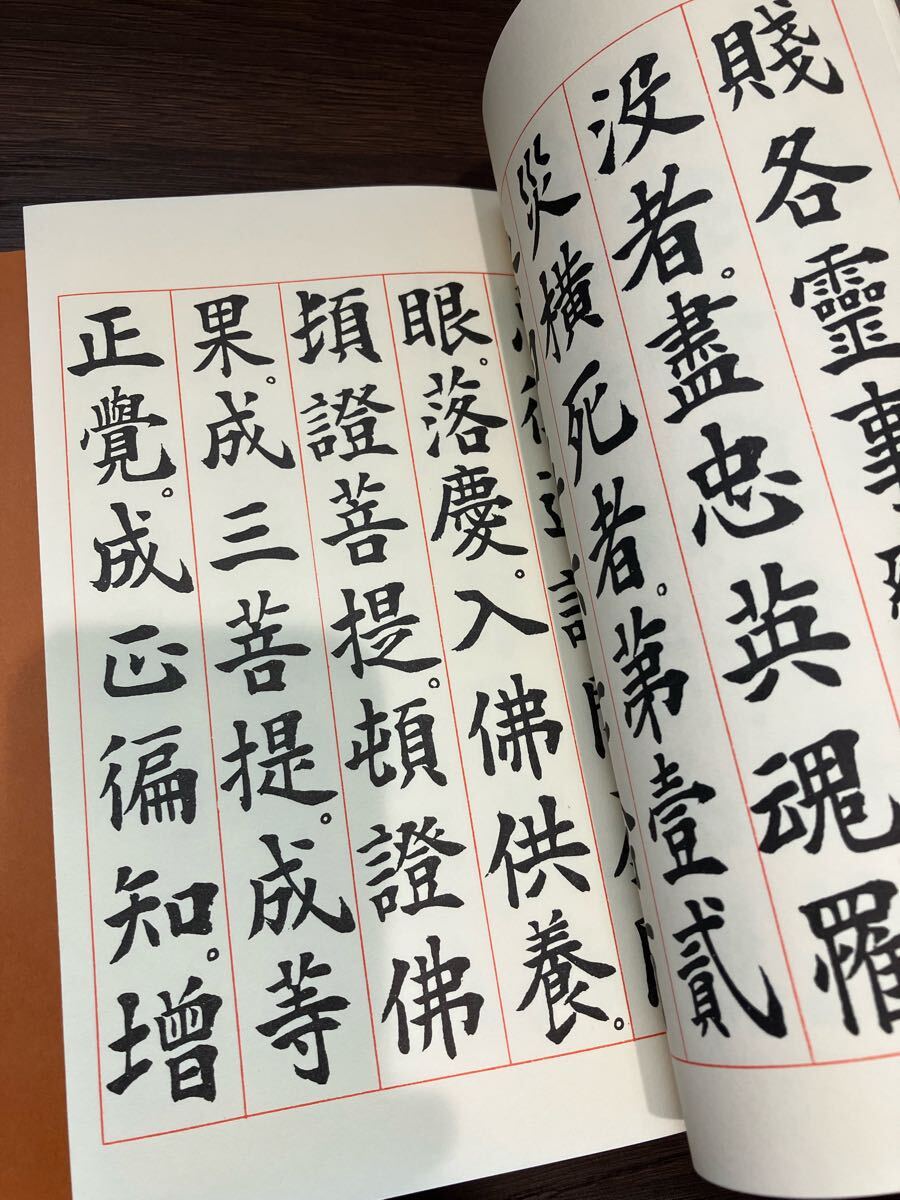 賤各靈
没者。盡忠英魂罹
災橫死者。第壹貳
眼。落慶。入佛供養。
頓證菩提。頓證佛
果。成三菩提。成等
正覺。成正徧知。增